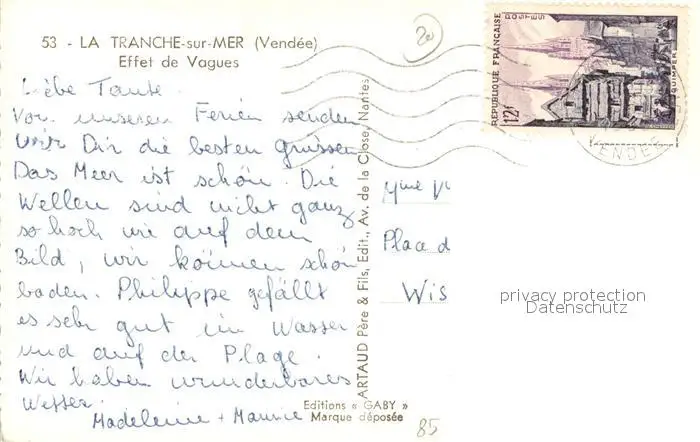 53 - LA TRANCHE-sur-MER (Vendée)
Effet de Vagues
20
REPUBLIQUE FRANÇAISE
POSTES
12F
QUIMPER
VENDEE
Liebe Tante.
Von unseren Ferien senden
wir Dir die besten grüssen
Das Meer ist schön. Die
Wellen sind nicht ganz
so hoch wie auf dem
Bild, wir können schön
baden. Philippe gefällt
es sehr gut im Wasser
und auf der Plage.
Wir haben wunderbares
Wetter.
Madeleine + Maurice
ARTAUD Père & Fils, Edit., Av. de la Close, Nantes
Mme
Place d
Wis
privacy protection
Datenschutz
Editions « GABY »
Marque déposée
85